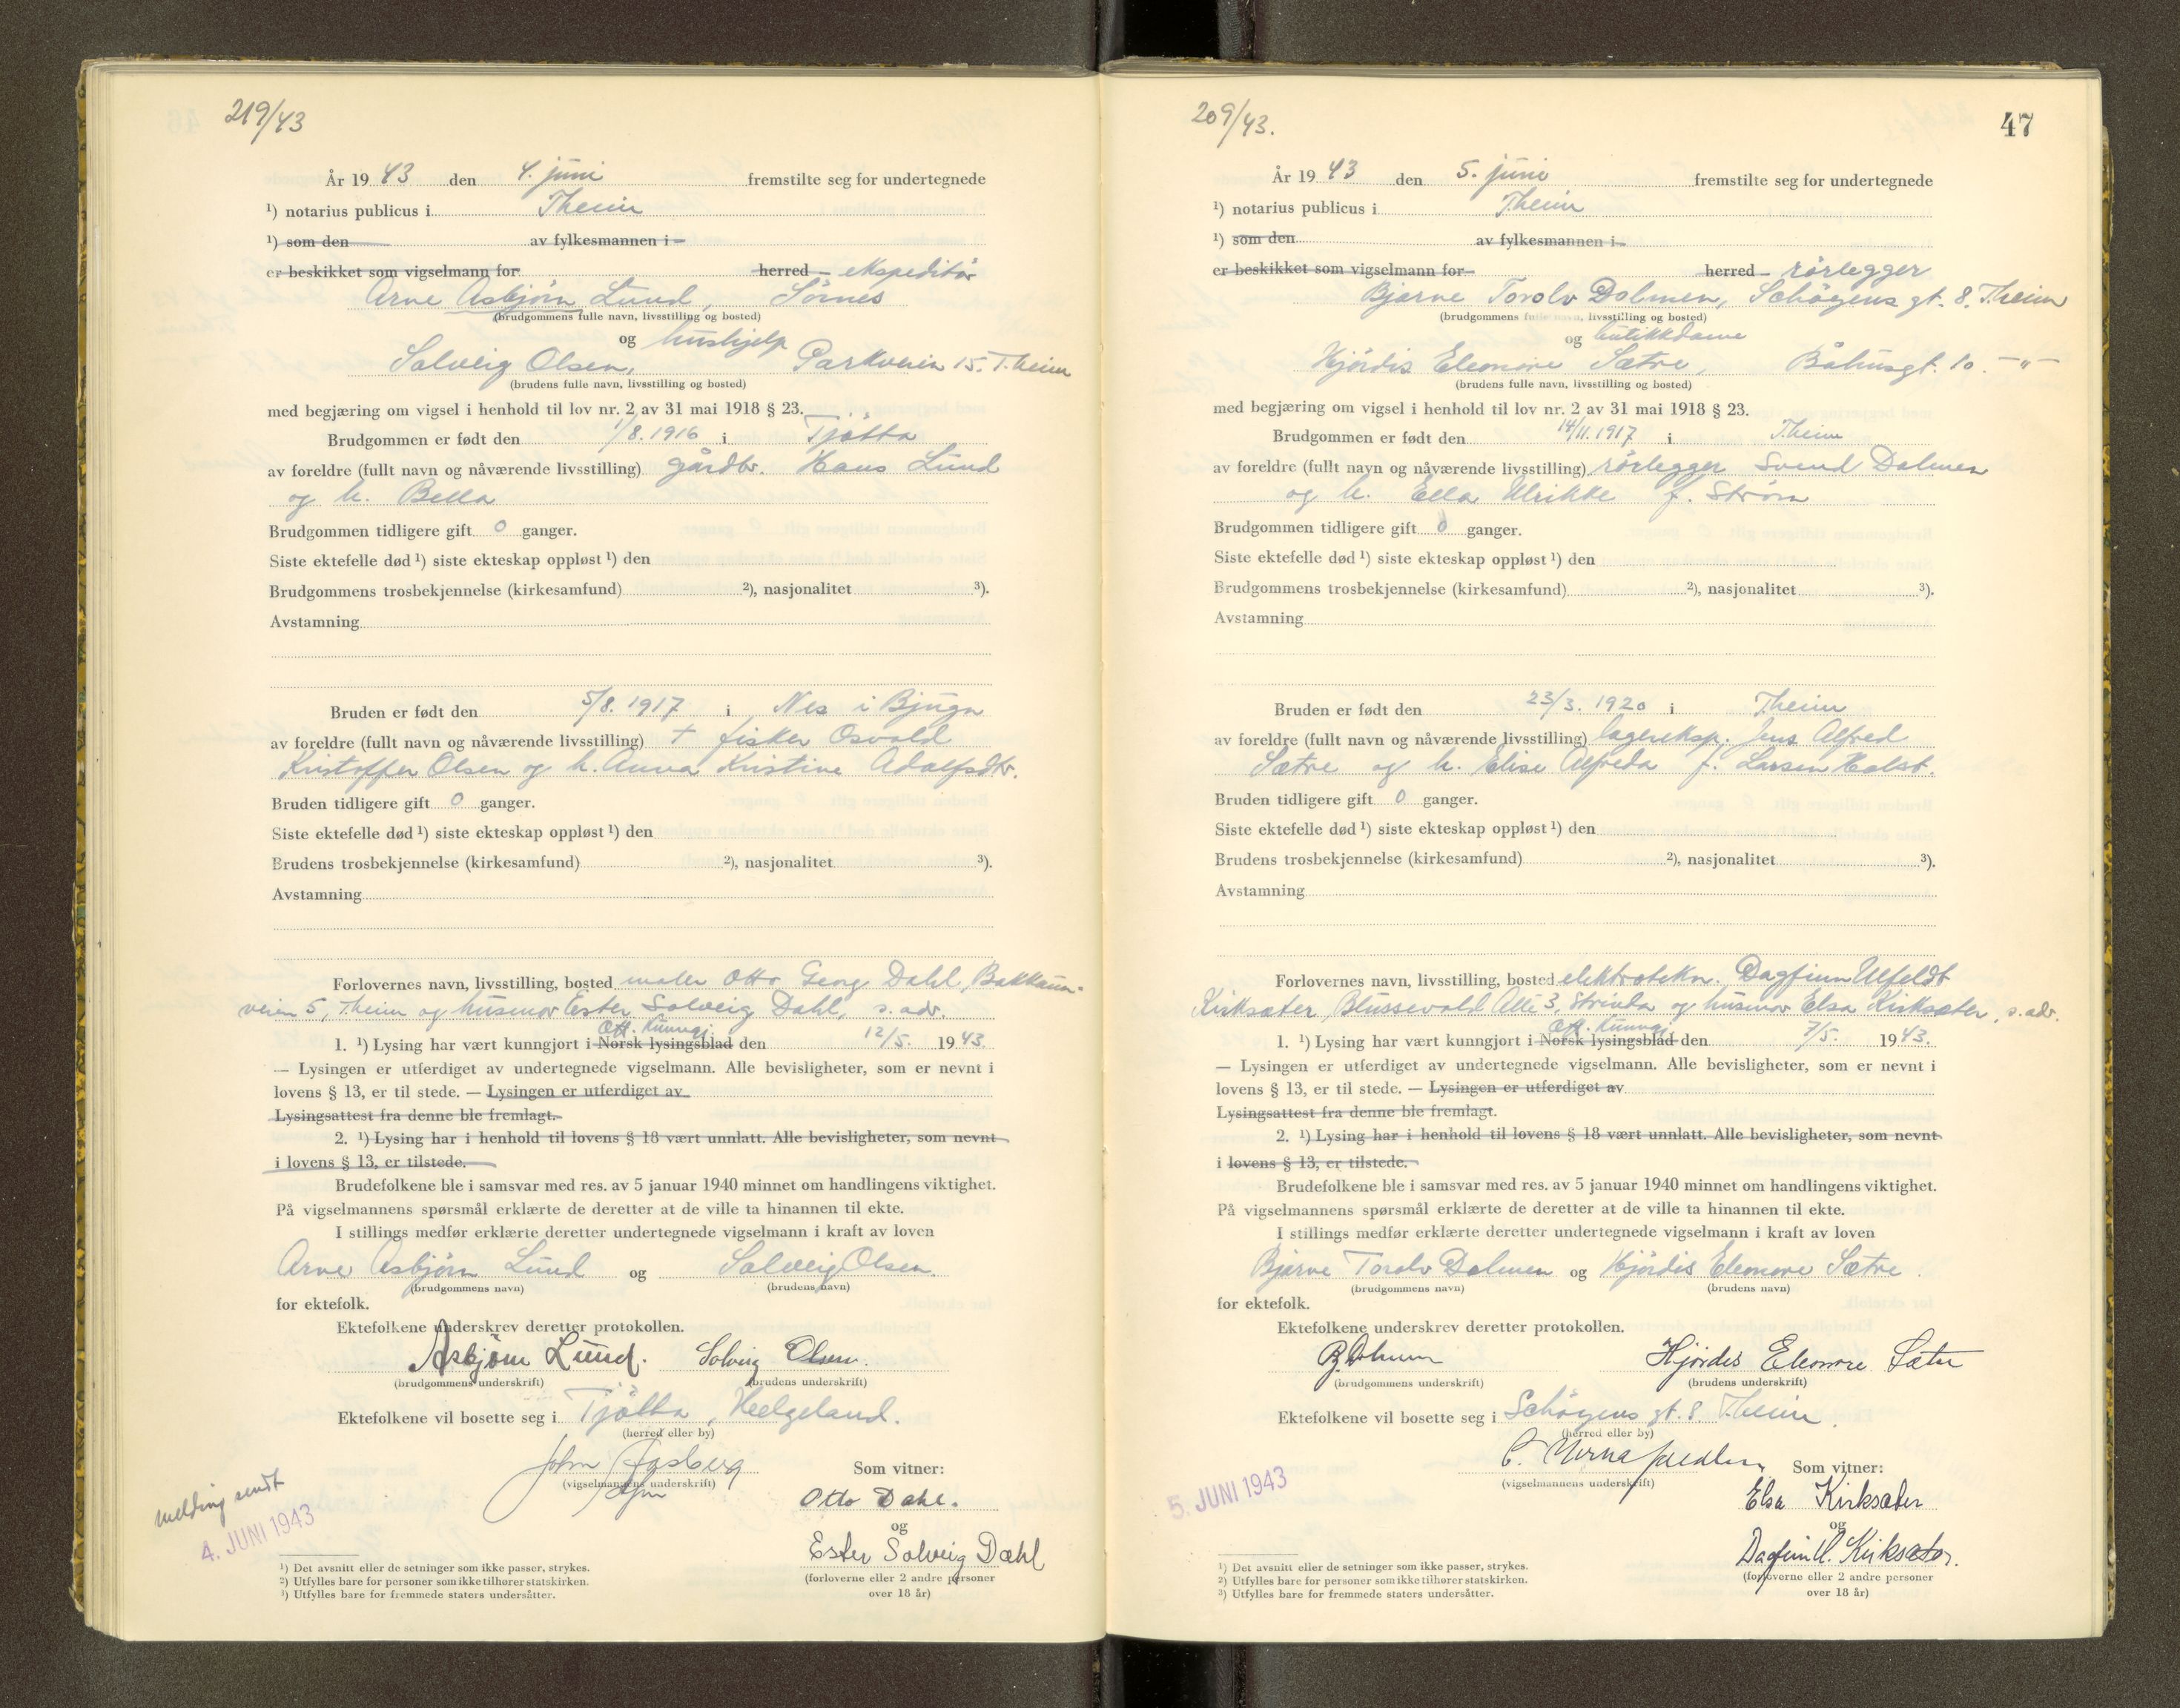 219/43
År 19 43 den 4. juni fremstilte seg for undertegnede
¹) notarius publicus i Theim
¹) som den av fylkesmannen i
er beskikket som vigselmann for herred ekspeditør
Arne Asbjørn Lund, Sörnes
(brudgommens fulle navn, livsstilling og bosted)
og hushjelp
Solveig Olsen, Parkveien 15. T.heim
(brudens fulle navn, livsstilling og bosted)
med begjæring om vigsel i henhold til lov nr. 2 av 31 mai 1918 § 23.
Brudgommen er født den 1/8. 1916 i Tjøtta
av foreldre (fullt navn og nåværende livsstilling) gårdbr. Hans Lund
og h. Bella
Brudgommen tidligere gift 0 ganger.
Siste ektefelle død ¹) siste ekteskap oppløst ¹) den
Brudgommens trosbekjennelse (kirkesamfund) ²), nasjonalitet ³).
Avstamning
Bruden er født den 5/8. 1917 i Nes i Bjugn
av foreldre (fullt navn og nåværende livsstilling) + fisker Osvald
Kristoffer Olsen og h. Anna Kristine Adolfsdtr.
Bruden tidligere gift 0 ganger.
Siste ektefelle død ¹) siste ekteskap oppløst ¹) den
Brudens trosbekjennelse (kirkesamfund) ²), nasjonalitet ³).
Avstamning
Forlovernes navn, livsstilling, bosted maler Otto Georg Dahl, Bakkaun-
veien 5, T.heim og husmor Ester Solveig Dahl, s. adr.
Off. Kunngj.
1. ¹) Lysing har vært kunngjort i Norsk lysingsblad den 12/5. 19 43.
— Lysingen er utferdiget av undertegnede vigselmann. Alle bevisligheter, som er nevnt i
lovens § 13, er til stede. — Lysingen er utferdiget av
Lysingsattest fra denne ble fremlagt.
2. ¹) Lysing har i henhold til lovens § 18 vært unnlatt. Alle bevisligheter, som nevnt
i lovens § 13, er tilstede.
Brudefolkene ble i samsvar med res. av 5 januar 1940 minnet om handlingens viktighet.
På vigselmannens spørsmål erklærte de deretter at de ville ta hinannen til ekte.
I stillings medfør erklærte deretter undertegnede vigselmann i kraft av loven
Arne Asbjørn Lund og Solveig Olsen.
(brudgommens navn) (brudens navn)
for ektefolk.
Ektefolkene underskrev deretter protokollen.
Asbjörn Lund. Solveig Olsen.
(brudgommens underskrift) (brudens underskrift)
Ektefolkene vil bosette seg i Tjøtta, Helgeland.
(herred eller by)
John Aasberg
(vigselmannens underskrift)
Som vitner:
Otto Dahl.
og
Ester Solveig Dahl
(forloverne eller 2 andre personer
over 18 år)
melding sendt
4. JUNI 1943
¹) Det avsnitt eller de setninger som ikke passer, strykes.
²) Utfylles bare for personer som ikke tilhører statskirken.
³) Utfylles bare for fremmede staters undersåtter.
209/43.
47
År 19 43 den 5. juni fremstilte seg for undertegnede
¹) notarius publicus i T.heim
¹) som den av fylkesmannen i
er beskikket som vigselmann for herred rørlegger
Bjarne Torolv Dolmen, Schøgens gt. 8, T.heim
(brudgommens fulle navn, livsstilling og bosted)
og butikkdame
Hjördis Eleonore Sætre, Båhusgt. 10. —"—
(brudens fulle navn, livsstilling og bosted)
med begjæring om vigsel i henhold til lov nr. 2 av 31 mai 1918 § 23.
Brudgommen er født den 14/11. 1917 i T.heim
av foreldre (fullt navn og nåværende livsstilling) rørlegger Svend Dolmen
og h. Ella Ulrikke f. Strøm
Brudgommen tidligere gift 0 ganger.
Siste ektefelle død ¹) siste ekteskap oppløst ¹) den
Brudgommens trosbekjennelse (kirkesamfund) ²), nasjonalitet ³).
Avstamning
Bruden er født den 23/3. 1920 i T.heim
av foreldre (fullt navn og nåværende livsstilling) lagereksp. Jens Alfred
Sætre og h. Elise Alfreda f. Larsen Holst.
Bruden tidligere gift 0 ganger.
Siste ektefelle død ¹) siste ekteskap oppløst ¹) den
Brudens trosbekjennelse (kirkesamfund) ²), nasjonalitet ³).
Avstamning
Forlovernes navn, livsstilling, bosted elektrotekn. Dagfinn Ulfeldt
Kirksæter, Blussevold Allé 3, Strinda og husmor Elsa Kirksæter, s. adr.
Off. Kunngj.
1. ¹) Lysing har vært kunngjort i Norsk lysingsblad den 7/5. 19 43.
— Lysingen er utferdiget av undertegnede vigselmann. Alle bevisligheter, som er nevnt i
lovens § 13, er til stede. — Lysingen er utferdiget av
Lysingsattest fra denne ble fremlagt.
2. ¹) Lysing har i henhold til lovens § 18 vært unnlatt. Alle bevisligheter, som nevnt
i lovens § 13, er tilstede.
Brudefolkene ble i samsvar med res. av 5 januar 1940 minnet om handlingens viktighet.
På vigselmannens spørsmål erklærte de deretter at de ville ta hinannen til ekte.
I stillings medfør erklærte deretter undertegnede vigselmann i kraft av loven
Bjarne Torolv Dolmen og Hjördis Eleonore Sætre.
(brudgommens navn) (brudens navn)
for ektefolk.
Ektefolkene underskrev deretter protokollen.
B. Dolmen Hjördis Eleonore Sæter
(brudgommens underskrift) (brudens underskrift)
Ektefolkene vil bosette seg i Schøgens gt. 8 T.heim.
(herred eller by)
(vigselmannens underskrift)
Som vitner:
Elsa Kirksæter
og
Dagfinn U. Kirksæter.
(forloverne eller 2 andre personer
over 18 år)
5. JUNI 1943
¹) Det avsnitt eller de setninger som ikke passer, strykes.
²) Utfylles bare for personer som ikke tilhører statskirken.
³) Utfylles bare for fremmede staters undersåtter.